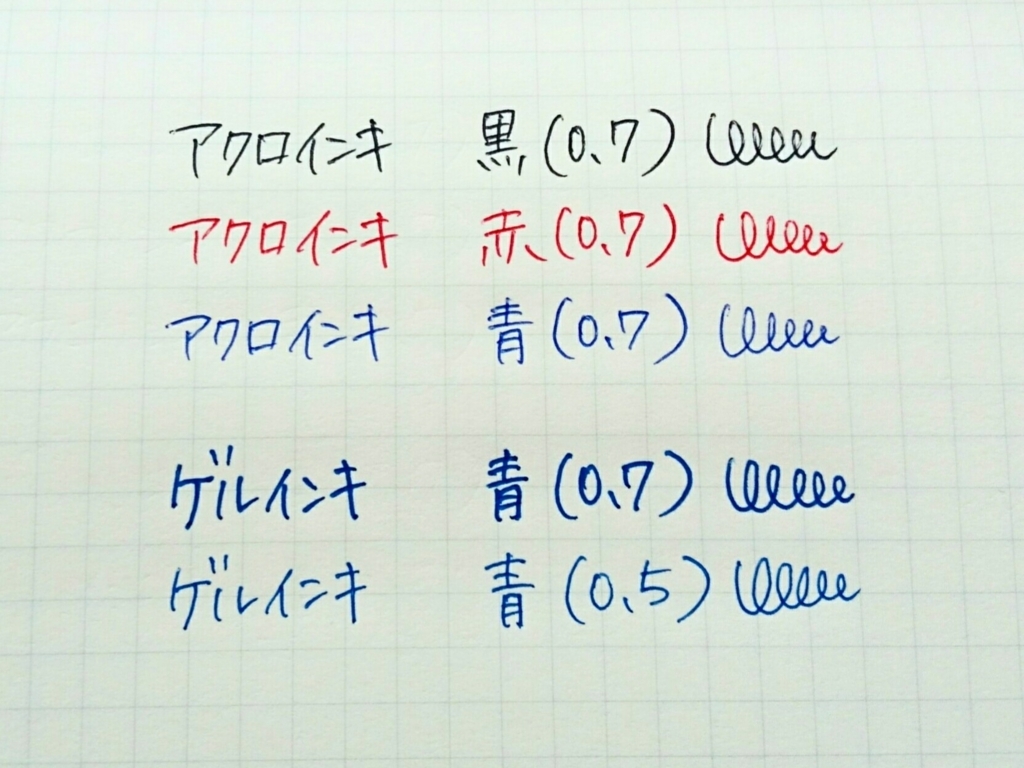 アクロインキ 黒(0.7)
アクロインキ 赤(0.7)
アクロインキ 青(0.7)
ゲルインキ 青(0.7)
ゲルインキ 青(0.5)